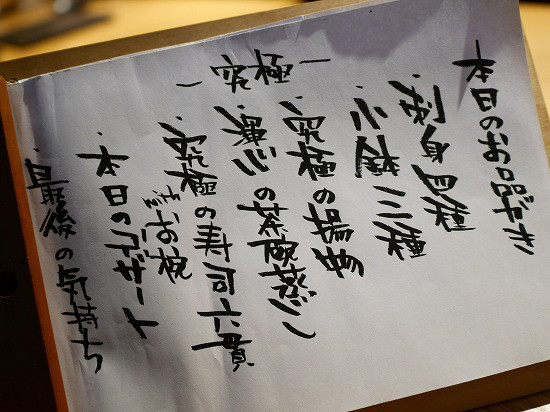 本日のお品がき
－究極－
・刺身四種
・小鉢三種
・究極の揚物
・運心の茶碗蒸し
・究極の寿司六貫
withお椀
・本日のデザート
・最後の気持ち